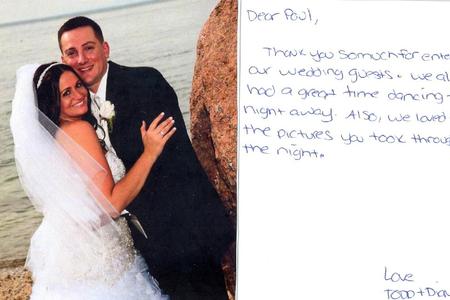 Dear Paul,
Thank you so much for
our wedding guests. We
had a great time dancing
night away. Also, we loved
the pictures you took
the night.
Love
TODD +